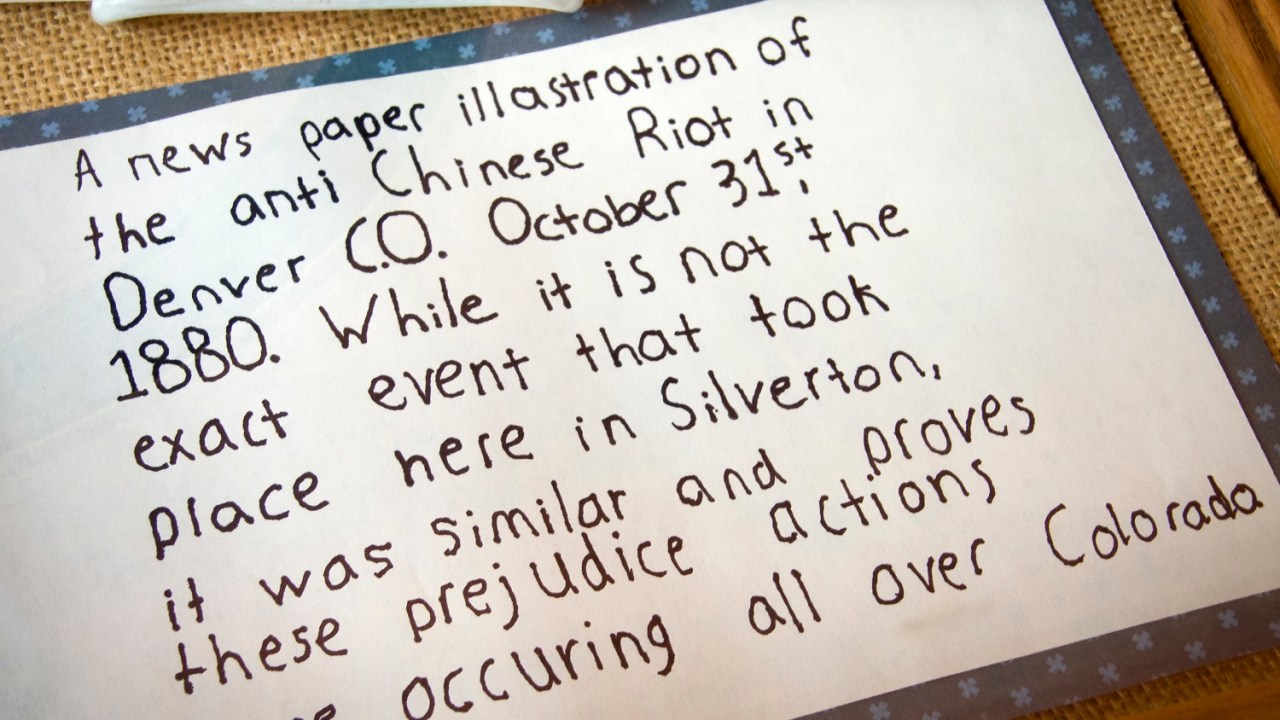 A news paper illastration of
the anti Chinese Riot in
Denver C.O. October 31st,
1880. While it is not the
exact event that took
place here in Silverton,
it was similar and proves
these prejudice actions
occuring all over Colorado